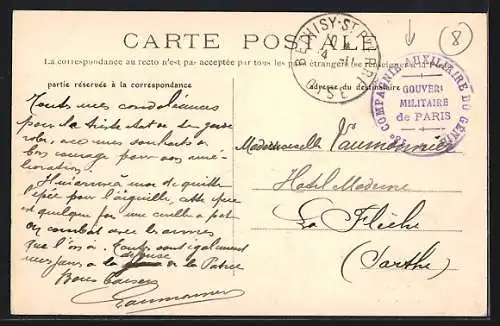 (8)
CARTE POSTALE
BETHISY-ST PIERRE
OISE
La correspondance au recto n'est pas acceptée par tous les pays étrangers se renseigner à la poste
partie réservée à la correspondance
adresse du destinataire
COMPAGNIE AUXILIAIRE DU GÉNIE
GOUVERt
MILITAIRE
de PARIS
Toutes mes condoléances
pour la triste état de ta garde
robe, avec mes souhaits
bon courage pour son amé-
lioration.
Il m'arrive à moi de quitter
l'épée pour l'aiguille, cette
quelque
combat avec les armes
que l'on a. Toutes sont également
à la défense de la Patrie
Bons baisers
Vaumonnier
Mademoiselle Vaumonnier
Hotel Moderne
La Flèche
(Sarthe)